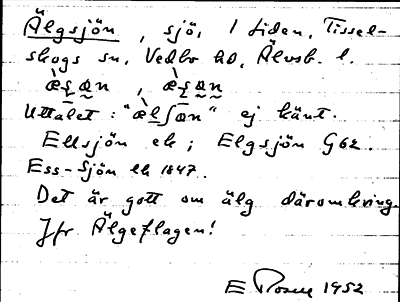 Älgsjön, sjö, 1 tiden, Tissel-
skogs sn, Vedbo hd, Älvsb. l.
Uttalet: "æ̀lʃøn" ej känt.
Ellsjön ek; Elgsjön G62.
Ess-sjön lk 1847.
Det är gott om älg däromkring.
Jfr Älgeflagen!
E Rosell 1952